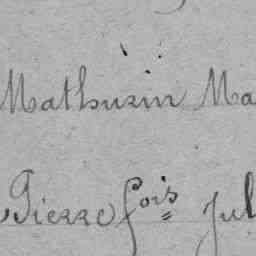 Mathurin Ma
Pierre fois Jul